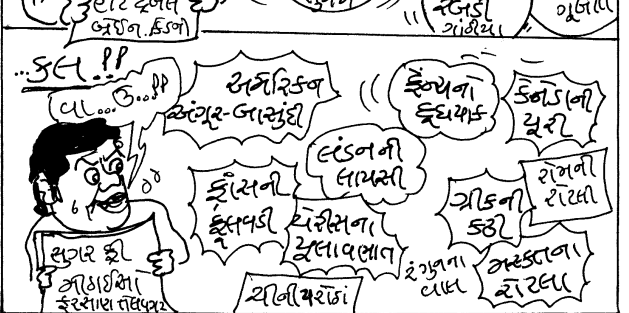 બ્રેઈન કિડની
રબડી
ગાંઠીયા
ગુલાબ
...કાલ !!
વા...ઉ..!!
અમેરિકન
અંગૂર-બાસુંદી
ફ્રેન્ચનો
દૂધપાક
કેનેડાની
પૂરી
લંડનની
લાપસી
ફ્રાંસની
ફૂલવડી
પેરીસના
પૂલાવભાત
ગ્રીકની
કઢી
રોમની
રોટલી
રંગુનના
વાલ
મસ્કતના
રોટલા
ચીની પરોઠાં
સુગર ફ્રી
મીઠાઈઓ
ફરસાણ તેલવગર